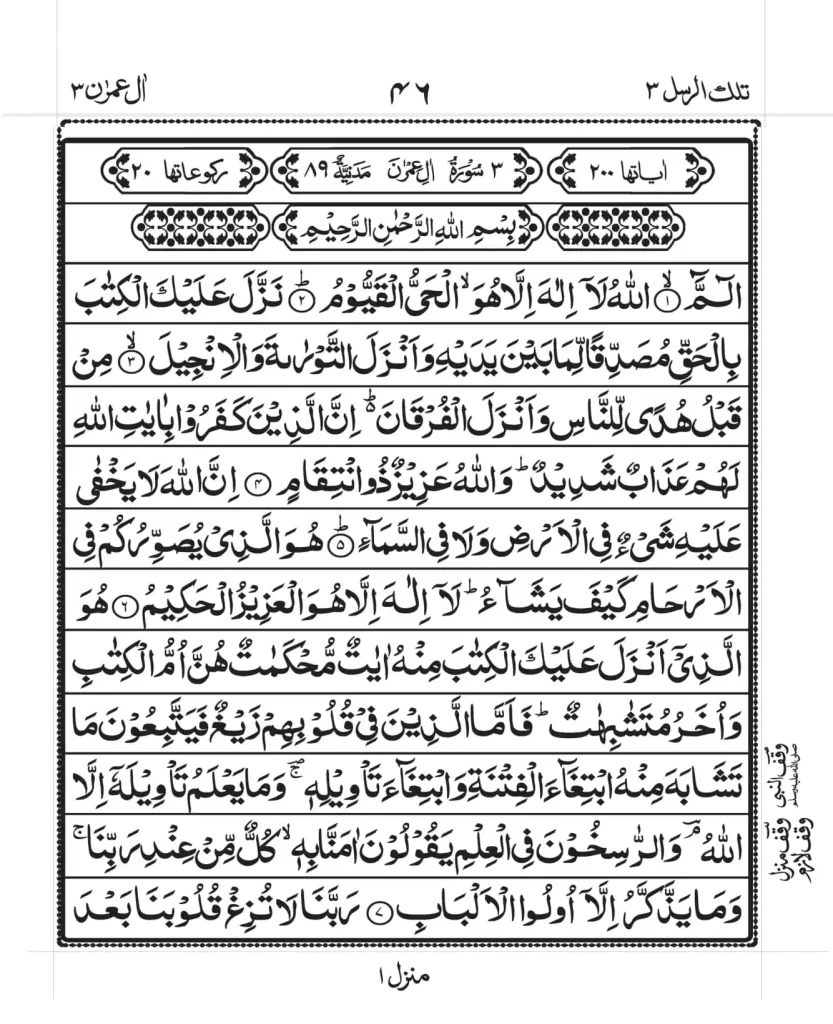 تلك الرسل ٣
٤٦
اٰل عمرٰن ٣
اٰياتها ٢٠٠
٣ سُوْرَةُ اٰلِ عِمْرٰنَ مَدَنِيَّةٌ ٨٩
ركوعاتها ٢٠
بِسْمِ اللّٰهِ الرَّحْمٰنِ الرَّحِيْمِ
الٓمَّٓ ۙ﴿١﴾ اللّٰهُ لَاۤ اِلٰهَ اِلَّا هُوَ ۙ الْحَىُّ الْقَيُّوْمُ ؕ﴿٢﴾ نَزَّلَ عَلَيْكَ الْكِتٰبَ
بِالْحَقِّ مُصَدِّقًا لِّمَا بَيْنَ يَدَيْهِ وَاَنْزَلَ التَّوْرٰىةَ وَالْاِنْجِيْلَ ۙ﴿٣﴾ مِنْ
قَبْلُ هُدًى لِّلنَّاسِ وَاَنْزَلَ الْفُرْقَانَ ؕ۬ اِنَّ الَّذِيْنَ كَفَرُوْا بِاٰيٰتِ اللّٰهِ
لَهُمْ عَذَابٌ شَدِيْدٌ ؕ وَاللّٰهُ عَزِيْزٌ ذُو انْتِقَامٍ ﴿٤﴾ اِنَّ اللّٰهَ لَا يَخْفٰى
عَلَيْهِ شَىْءٌ فِى الْاَرْضِ وَلَا فِى السَّمَآءِ ؕ﴿٥﴾ هُوَ الَّذِىْ يُصَوِّرُكُمْ فِى
الْاَرْحَامِ كَيْفَ يَشَآءُ ؕ لَاۤ اِلٰهَ اِلَّا هُوَ الْعَزِيْزُ الْحَكِيْمُ ﴿٦﴾ هُوَ
الَّذِىْۤ اَنْزَلَ عَلَيْكَ الْكِتٰبَ مِنْهُ اٰيٰتٌ مُّحْكَمٰتٌ هُنَّ اُمُّ الْكِتٰبِ
وَاُخَرُ مُتَشٰبِهٰتٌ ؕ فَاَمَّا الَّذِيْنَ فِىْ قُلُوْبِهِمْ زَيْغٌ فَيَتَّبِعُوْنَ مَا
تَشَابَهَ مِنْهُ ابْتِغَآءَ الْفِتْنَةِ وَابْتِغَآءَ تَاْوِيْلِهٖ ۚ وَمَا يَعْلَمُ تَاْوِيْلَهٗۤ اِلَّا
اللّٰهُ ۘ وَالرّٰسِخُوْنَ فِى الْعِلْمِ يَقُوْلُوْنَ اٰمَنَّا بِهٖ ۙ كُلٌّ مِّنْ عِنْدِ رَبِّنَا ۚ
وَمَا يَذَّكَّرُ اِلَّاۤ اُولُوا الْاَلْبَابِ ﴿٧﴾ رَبَّنَا لَا تُزِغْ قُلُوْبَنَا بَعْدَ
وقف النبى صلى الله عليه وسلم
وقف منزل
وقف لازم
منزل ١